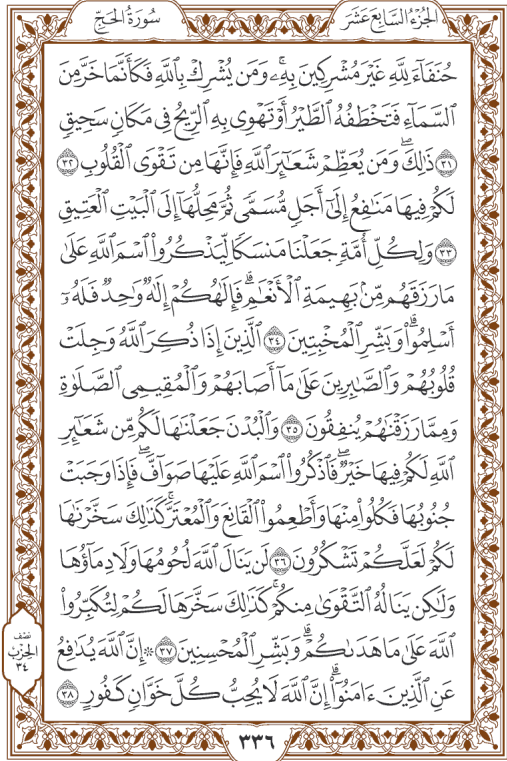 الجُزْءُ السَّابِعَ عَشَرَ
سُورَةُ الحَجِّ
حُنَفَآءَ لِلَّهِ غَيْرَ مُشْرِكِينَ بِهِۦۚ وَمَن يُشْرِكْ بِٱللَّهِ فَكَأَنَّمَا خَرَّ مِنَ
ٱلسَّمَآءِ فَتَخْطَفُهُ ٱلطَّيْرُ أَوْ تَهْوِى بِهِ ٱلرِّيحُ فِى مَكَانٍ سَحِيقٍ
٣١ ذَٰلِكَۖ وَمَن يُعَظِّمْ شَعَـٰٓئِرَ ٱللَّهِ فَإِنَّهَا مِن تَقْوَى ٱلْقُلُوبِ ٣٢
لَكُمْ فِيهَا مَنَـٰفِعُ إِلَىٰٓ أَجَلٍ مُّسَمًّى ثُمَّ مَحِلُّهَآ إِلَى ٱلْبَيْتِ ٱلْعَتِيقِ
٣٣ وَلِكُلِّ أُمَّةٍ جَعَلْنَا مَنسَكًا لِّيَذْكُرُوا۟ ٱسْمَ ٱللَّهِ عَلَىٰ
مَا رَزَقَهُم مِّنۢ بَهِيمَةِ ٱلْأَنْعَـٰمِۗ فَإِلَـٰهُكُمْ إِلَـٰهٌ وَٰحِدٌ فَلَهُۥٓ
أَسْلِمُوا۟ۗ وَبَشِّرِ ٱلْمُخْبِتِينَ ٣٤ ٱلَّذِينَ إِذَا ذُكِرَ ٱللَّهُ وَجِلَتْ
قُلُوبُهُمْ وَٱلصَّـٰبِرِينَ عَلَىٰ مَآ أَصَابَهُمْ وَٱلْمُقِيمِى ٱلصَّلَوٰةِ
وَمِمَّا رَزَقْنَـٰهُمْ يُنفِقُونَ ٣٥ وَٱلْبُدْنَ جَعَلْنَـٰهَا لَكُم مِّن شَعَـٰٓئِرِ
ٱللَّهِ لَكُمْ فِيهَا خَيْرٌۖ فَٱذْكُرُوا۟ ٱسْمَ ٱللَّهِ عَلَيْهَا صَوَآفَّۖ فَإِذَا وَجَبَتْ
جُنُوبُهَا فَكُلُوا۟ مِنْهَا وَأَطْعِمُوا۟ ٱلْقَانِعَ وَٱلْمُعْتَرَّۚ كَذَٰلِكَ سَخَّرْنَـٰهَا
لَكُمْ لَعَلَّكُمْ تَشْكُرُونَ ٣٦ لَن يَنَالَ ٱللَّهَ لُحُومُهَا وَلَا دِمَآؤُهَا
وَلَـٰكِن يَنَالُهُ ٱلتَّقْوَىٰ مِنكُمْۚ كَذَٰلِكَ سَخَّرَهَا لَكُمْ لِتُكَبِّرُوا۟
ٱللَّهَ عَلَىٰ مَا هَدَىٰكُمْۗ وَبَشِّرِ ٱلْمُحْسِنِينَ ٣٧ ۞ إِنَّ ٱللَّهَ يُدَٰفِعُ
عَنِ ٱلَّذِينَ ءَامَنُوٓا۟ۗ إِنَّ ٱللَّهَ لَا يُحِبُّ كُلَّ خَوَّانٍ كَفُورٍ ٣٨
نصف
الحِزْبُ
٣٤
٣٣٦